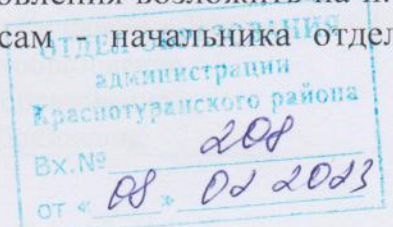 овления возложить на п.
сам - начальника отдел
ОТДЕЛ ОБРАЗОВАНИЯ
администрации
Краснотуранского района
Вх.№ 208
от « 08 » 02 2023